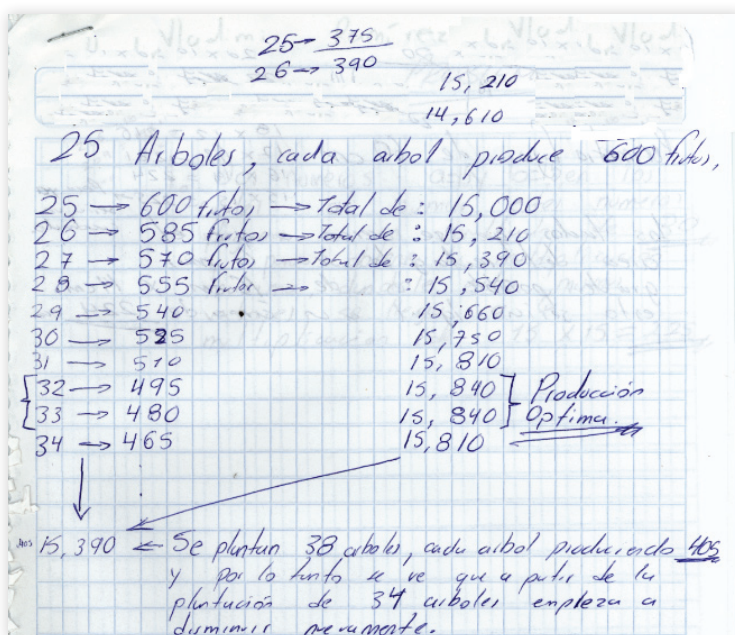 25 → 375
26 → 390
15, 210
14,610
25 Arboles, cada arbol produce 600 frutos,
25 → 600 frutos → Total de : 15,000
26 → 585 frutos → Total de : 15, 210
27 → 570 frutos → Total de : 15, 390
28 → 555 frutos → : 15, 540
29 → 540 15,660
30 → 525 15,750
31 → 510 15, 810
32 → 495 15, 840
33 → 480 15, 840
Producción Optima.
34 → 465 15,810
15,390 ← Se plantan 38 arboles, cada arbol produciendo 405
y por lo tanto se ve que a partir de la
plantación de 34 arboles empieza a
disminuir nuevamente.